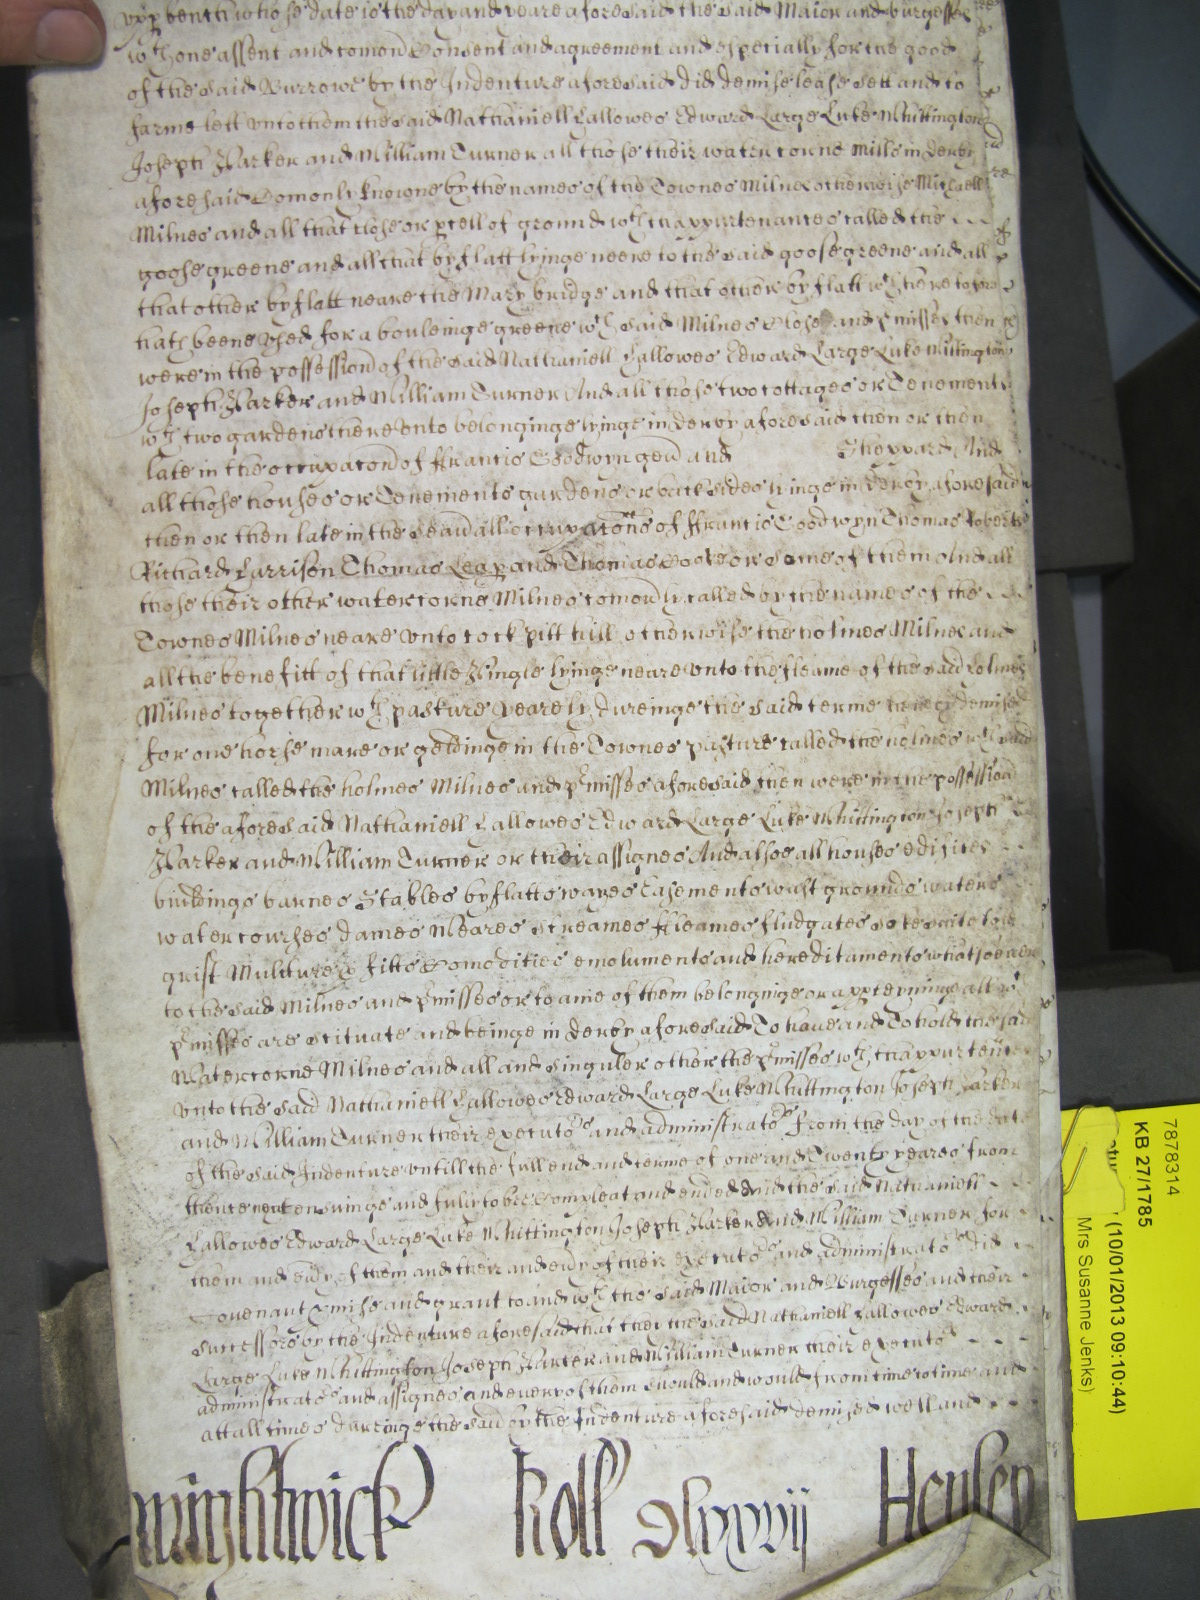 whose date is the day and yeare aforesaid the said Maior and Burgesses
wth one assent and comon Consent and agreement and especially for the good
of the said Burrowe by the Indenture aforesaid did demise lease sett and to
farme lett vnto them the said Nathaniell Hallowes Edward Large Luke Whittington
Joseph Parker and William Turner all those their water corne Mills in Derby
aforesaid Comonly knowne by the names of the Townes Milnes otherwise
Milnes and all that close or pcell of ground wth thappurtenances called the
goose greene and all that byflatt lyinge neere to the said goose greene and all
that other byflatt neare the Mary bridge and that other byflatt wth heretofore
hath beene vsed for a bouleinge greene wch said Milnes Close and pmisses then
were in the possession of the said Nathaniell Hallowes Edward Large Luke Whittington
Joseph Parker and William Turner And all those two cottages or Tenements
wth two gardens there vnto belonginge lyinge in Derby aforesaid then or then
late in the occupacon of ffrancis Goodwyn gen and Sheppard And
all those houses or Tenements gardens or backsides lyinge in Derby aforesaid
then or then late in the seuall occupacons of ffrancis Goodwyn Thomas Roberts
Richard Harrison Thomas and Thomas or some of them And all
those their other water corne Milnes comonly called by the names of the
Townes Milnes neare vnto cock pitt hill otherwise the holmes Milnes and
all the benefitt of that little lyinge neare vnto the fleame of the said holmes
Milnes together wth pasture yearely dureinge the said terme demised
for one horse mare or geldinge in the Townes pasture called the holmes wch said
Milnes called the holmes Milnes and pmisses aforesaid then were in the possession
of the aforesaid Nathaniell Hallowes Edward Large Luke Whittington Joseph
Parker and William Turner or their assignes And alsoe all houses edifices
buildings barnes Stables byflatts wayes Easements wast grounds waters
water courses dames Weares streames ffleames fludgates
grist Multure pfitts Comodities emoluments and hereditaments whatsoever
to the said Milnes and pmisses or to anie of them belonginge or apperteyninge all wch
pmisses are scituate and beinge in Derby aforesaid To haue and To hold the said
Water corne Milnes and all and singuler other the pmisses wth thappurtences
vnto the said Nathaniell Hallowes Edward Large Luke Whittington Joseph Parker
and William Turner their executors and administrators from the day of the date
of the said Indenture vntill the full end and terme of one and Twenty yeares from
thence next ensuinge and fully to bee Compleat and ended And the said Nathaniell
Hallowes Edward Large Luke Whittington Joseph Parker And William Turner for
them and euy of them and their and euy of their executors and administrators did
Couenaunt pmise and grant to and wth the said Maior and Burgesses and their
successors by the Indenture aforesaid that they the said Nathaniell Hallowes Edward
Large Luke Whittington Joseph Parker and William Turner their executors
administrators and assignes and every of them should and would from time to time and
att all times dureinge the said by the Indenture aforesaid demised well and
Wightwick Roll Henley
7878314
KB 27/1785
(10/01/2013 09:10:44)
Mrs Susanne Jenks)